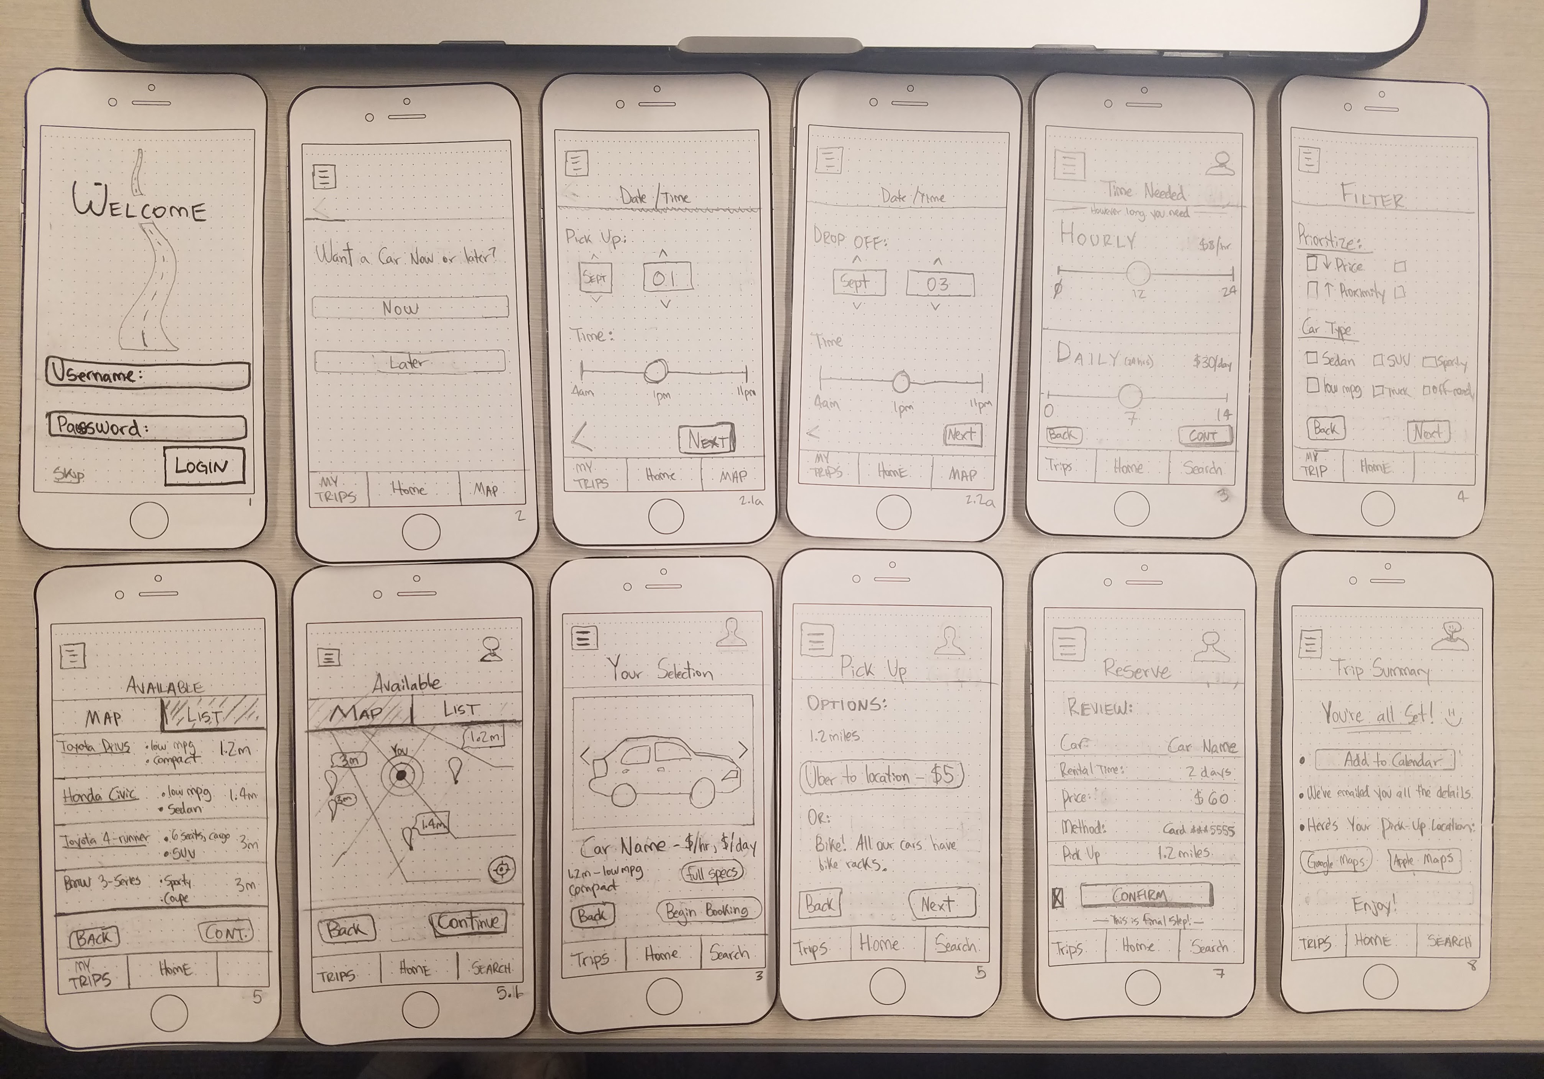 WELCOME
Username:
Password:
Skip
LOGIN
1
Want a Car Now or later?
Now
Later
MY TRIPS
Home
MAP
2
Date/Time
Pick Up:
SEPT
01
Time:
4am
1pm
11pm
NEXT
MY TRIPS
Home
MAP
2.1a
Date/Time
DROP OFF:
Sept
03
Time
4am
1pm
11pm
Next
MY TRIPS
HomE
MAP
2.2a
Time Needed
However long you need
HOURLY
$8/hr
0
12
24
DAILY
$30/day
0
7
14
Back
CONT
Trips
Home
Search
3
FILTER
Prioritize:
↓ Price
↑ Proximity
Car Type
Sedan
SUV
Sporty
low mpg
Truck
off-road
Back
Next
MY TRIP
HomE
4
AVAILABLE
MAP
LIST
Toyota Prius
• low mpg
• compact
1.2m
Honda Civic
• low mpg
• Sedan
1.4m
Toyota 4-runner
• 6 seats, cargo
• SUV
3m
BMW 3-Series
• Sporty
• Coupe
3m
BACK
CONT.
MY TRIPS
HomE
5
Available
MAP
LIST
You
1.2m
3m
3m
1.4m
Back
Continue
TRIPS
HomE
SEARCH
5.1
Your Selection
Car Name - $/hr, $/day
1.2m - low mpg
compact
full specs
Back
Begin Booking
Trips
Home
Search
3
Pick Up
OPTIONS:
1.2 miles
Uber to location - $5
OR:
Bike! All our cars have
bike racks.
Back
Next
Trips
Home
Search
5
Reserve
REVIEW:
Car:
Car Name
Rental Time:
2 days
Price:
$60
Method:
Card ***5555
Pick Up
1.2 miles
CONFIRM
This is final step!
Trips
Home
Search
7
Trip Summary
You're all Set!
• Add to Calendar
• We've emailed you all the details
• Here's Your Pick-Up Location:
Google Maps
Apple Maps
Enjoy!
TRIPS
HomE
SEARCH
8